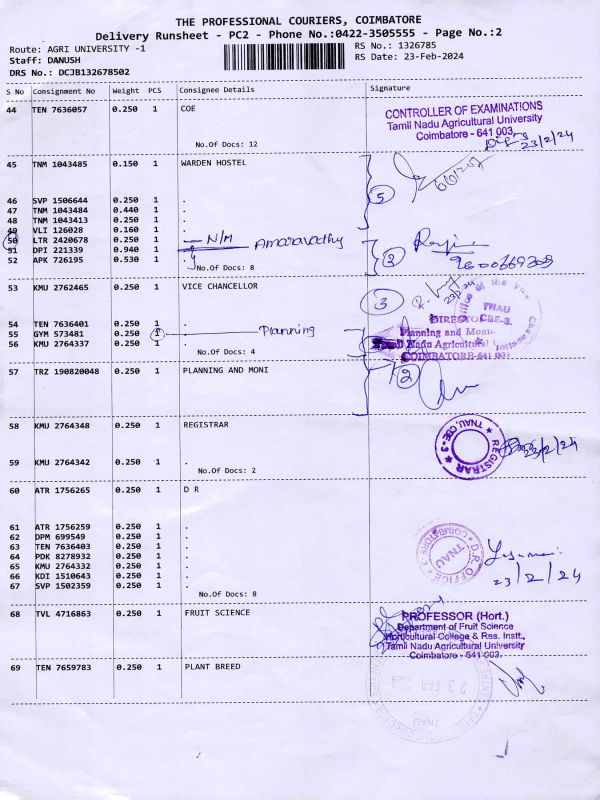 THE PROFESSIONAL COURIERS, COIMBATORE
Delivery Runsheet - PC2 - Phone No.:0422-3505555 - Page No.:2
Route: AGRI UNIVERSITY -1 RS No.: 1326785
Staff: DANUSH RS Date: 23-Feb-2024
DRS No.: DCJB132678502
S No Consignment No Weight PCS Consignee Details Signature
44 TEN 7636057 0.250 1 COE
CONTROLLER OF EXAMINATIONS
Tamil Nadu Agricultural University
Coimbatore - 641 003.
23/2/24
No.Of Docs: 12
45 TNM 1043485 0.150 1 WARDEN HOSTEL
5
46 SVP 1506644 0.250 1 .
47 TNM 1043484 0.440 1 .
48 TNM 1043413 0.250 1 .
49 VLI 126028 0.160 1 .
50 LTR 2420678 0.250 1 . N/M Amaravathy
51 DPI 221339 0.940 1 .
52 APK 726195 0.530 1 .
3
No.Of Docs: 8
53 KMU 2762465 0.250 1 VICE CHANCELLOR
3
Office of the Vice
TNAU
CBE-3.
54 TEN 7636401 0.250 1 .
55 GYM 573481 0.250 1 . Planning
56 KMU 2764337 0.250 1 .
DIRECTO
Planning and Moni
Nadu Agricultural
COIMBATORE-641 003
No.Of Docs: 4
57 TRZ 190820048 0.250 1 PLANNING AND MONI
2
58 KMU 2764348 0.250 1 REGISTRAR
TNAU, CBE-3 REGISTRAR
23/2/24
59 KMU 2764342 0.250 1 .
No.Of Docs: 2
60 ATR 1756265 0.250 1 D R
61 ATR 1756259 0.250 1 .
62 DPM 699549 0.250 1 .
63 TEN 7636403 0.250 1 .
64 PDK 8278932 0.250 1 .
65 KMU 2764332 0.250 1 .
66 KDI 1510643 0.250 1 .
67 SVP 1502359 0.250 1 .
D.R. OFFICE COIMBATORE-3
TNAU
23/2/24
No.Of Docs: 8
68 TVL 4716863 0.250 1 FRUIT SCIENCE
PROFESSOR (Hort.)
Department of Fruit Science
Horticultural College & Res. Instt.,
Tamil Nadu Agricultural University
Coimbatore - 641 003.
69 TEN 7659783 0.250 1 PLANT BREED
23 FEB 2024
TNAU